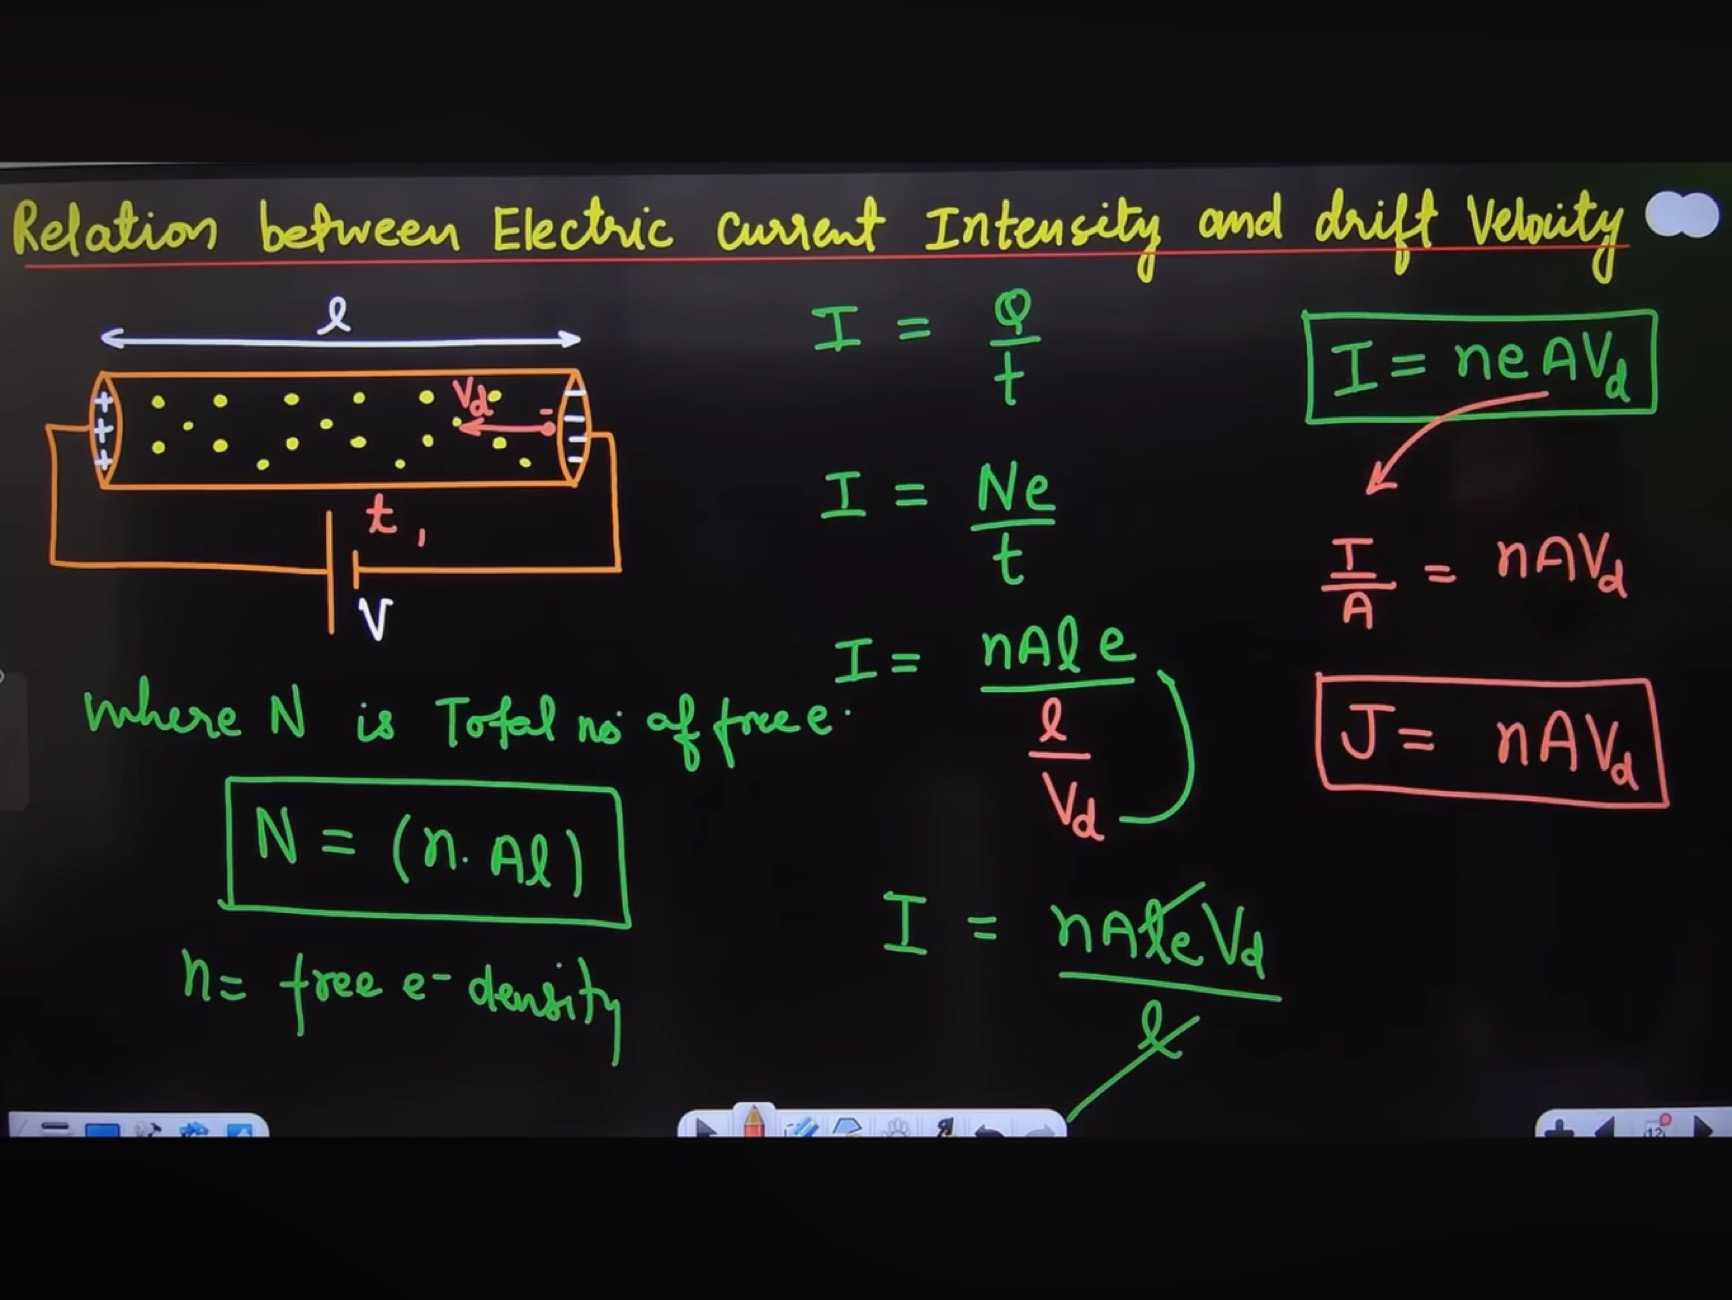 Relation between Electric current Intensity and drift Velocity
l
+ + +
Vd
-
- - - -
t,
V
where N is Total no of free e-
N = (n. Al)
n = free e- density
I = Q/t
I = Ne/t
I = nAl e / l/Vd
I = nAleVd / l
I = neAVd
I/A = nAVd
J = nAVd
12